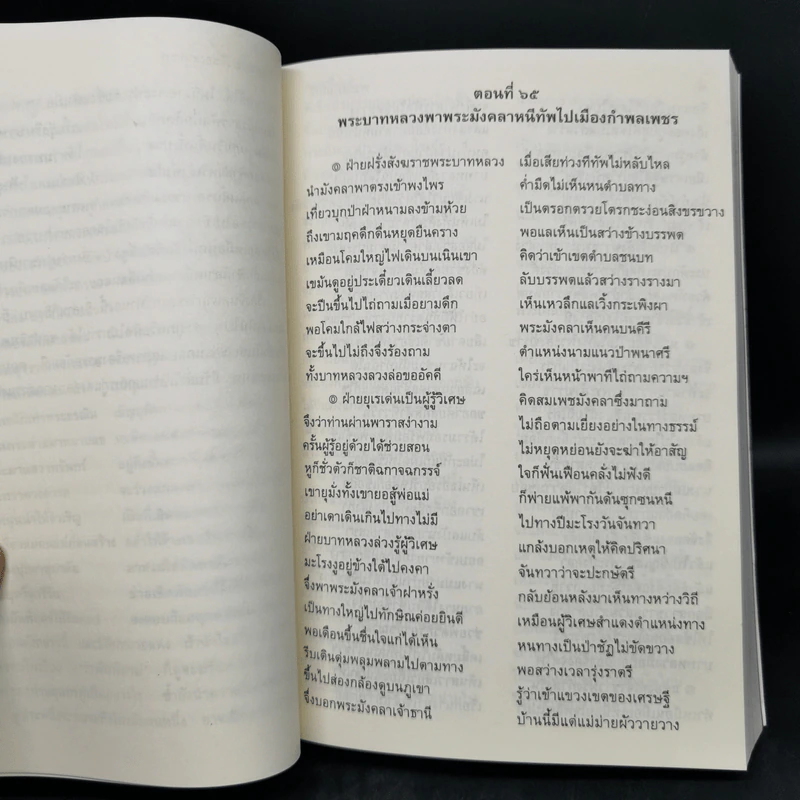 ตอนที่ ๖๕
พระบาทหลวงพาพระมังคลาหนีทัพไปเมืองกำพลเพชร
๏ ฝ่ายฝรั่งสังฆราชพระบาทหลวง เมื่อเสียท่วงทีทัพไม่หลับไหล
นำมังคลาพาตรงเข้าพงไพร ค่ำมืดไม่เห็นหนตำบลทาง
เที่ยวบุกป่าฝ่าหนามลงข้ามห้วย เป็นตรอกตรวยโตรกชะง่อนสิงขรขวาง
ถึงเขามฤคดึกดื่นหยุดยืนคราง พอแลเห็นเป็นสว่างข้างบรรพต
เหมือนโคมใหญ่ไฟเดินบนเนินเขา คิดว่าเข้าเขตตำบลชนบท
เขม้นดูอยู่ประเดี๋ยวเดินเลี้ยวลด ลับบรรพตแล้วสว่างรางรางมา
จะปีนขึ้นไปไถ่ถามเมื่อยามดึก เห็นเหวลึกแลเวิ้งกระเพิงผา
พอโคมใกล้ไฟสว่างกระจ่างตา พระมังคลาเห็นคนบนคีรี
จะขึ้นไปไม่ถึงจึ่งร้องถาม ตำแหน่งนามแนวป่าพนาศรี
ทั้งบาทหลวงลวงล่อขออัคคี ใคร่เห็นหน้าพาทีไถ่ถามความฯ
๏ ฝ่ายยุเรเด่นเป็นผู้รู้วิเศษ คิดสมเพชมังคลาซึ่งมาถาม
จึงว่าท่านผ่านพาราสง่างาม ไม่ถือตามเยี่ยงอย่างในทางธรรม์
ครั้นผู้รู้อยู่ด้วยได้ช่วยสอน ไม่หยุดหย่อนยังจะฆ่าให้อาสัญ
หูก็ชั่วตัวก็ชาติฉกาจฉกรรจ์ ใจก็ฟั่นเฟือนคลั่งไม่ฟังดี
เขายุมั่งทั้งเขายอสู้พ่อแม่ ก็พ่ายแพ้พากันดันซุกซนหนี
อย่าเดาเดินเกินไปทางไม่มี ไปทางปีมะโรงวันจันทวา
ฝ่ายบาทหลวงล่วงรู้ผู้วิเศษ แกล้งบอกเหตุให้คิดปริศนา
มะโรงงูอยู่ข้างใต้ไปคงคา จันทวาว่าจะปะกษัตรี
จึ่งพาพระมังคลาเจ้าฝาหรั่ง กลับย้อนหลังมาเห็นทางหว่างวิถี
เป็นทางใหญ่ไปทักษิณค่อยยินดี เหมือนผู้วิเศษสำแดงตำแหน่งทาง
พอเดือนขึ้นชื่นใจแก่ได้เห็น หนทางเป็นป่าชัฏไม่ขัดขวาง
รีบเดินดุ่มพลุมพลามไปตามทาง พอสว่างเวลารุ่งราตรี
ขึ้นไปส่องกล้องดูบนภูเขา รู้ว่าเข้าแขวงเขตของเศรษฐี
จึ่งบอกพระมังคลาเจ้าธานี บ้านนี้มีแต่แม่ม่ายผัววายวาง